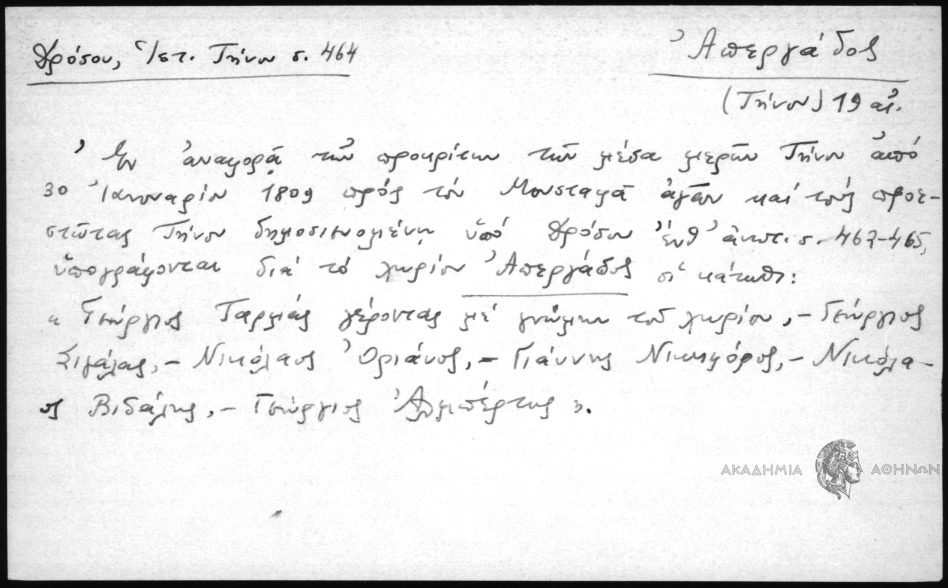 Δρόσου, Ἱστ. Τήνου σ. 464
Ἀπεργάδος
(Τήνου) 19 αἰ.
Ἐν ἀναφορᾷ τῶν προκρίτων τῶν μέσα μερῶν Τήνου ἀπό
30 Ἰανουαρίου 1809 πρός τόν Μουσταφᾶ ἀγᾶν καί τούς προε-
στῶτας Τήνου δημοσιευομένη ὑπό Δρόσου ἔνθ' ἀνωτ. σ. 463-465,
ὑπογράφονται διά τό χωρίον Ἀπεργάδος οἱ κάτωθι:
« Γεώργιος Γαρμάς γέροντας μέ γνώμην τοῦ χωρίου, – Γεώργιος
Σιγάλας, – Νικόλαος Ὀριάνος, – Γιάννης Νικηφόρος, – Νικόλα-
ος Βιδάλης, – Γεώργιος Ἀλμπέρτης ».
ΑΚΑΔΗΜΙΑ ΑΘΗΝΩΝ